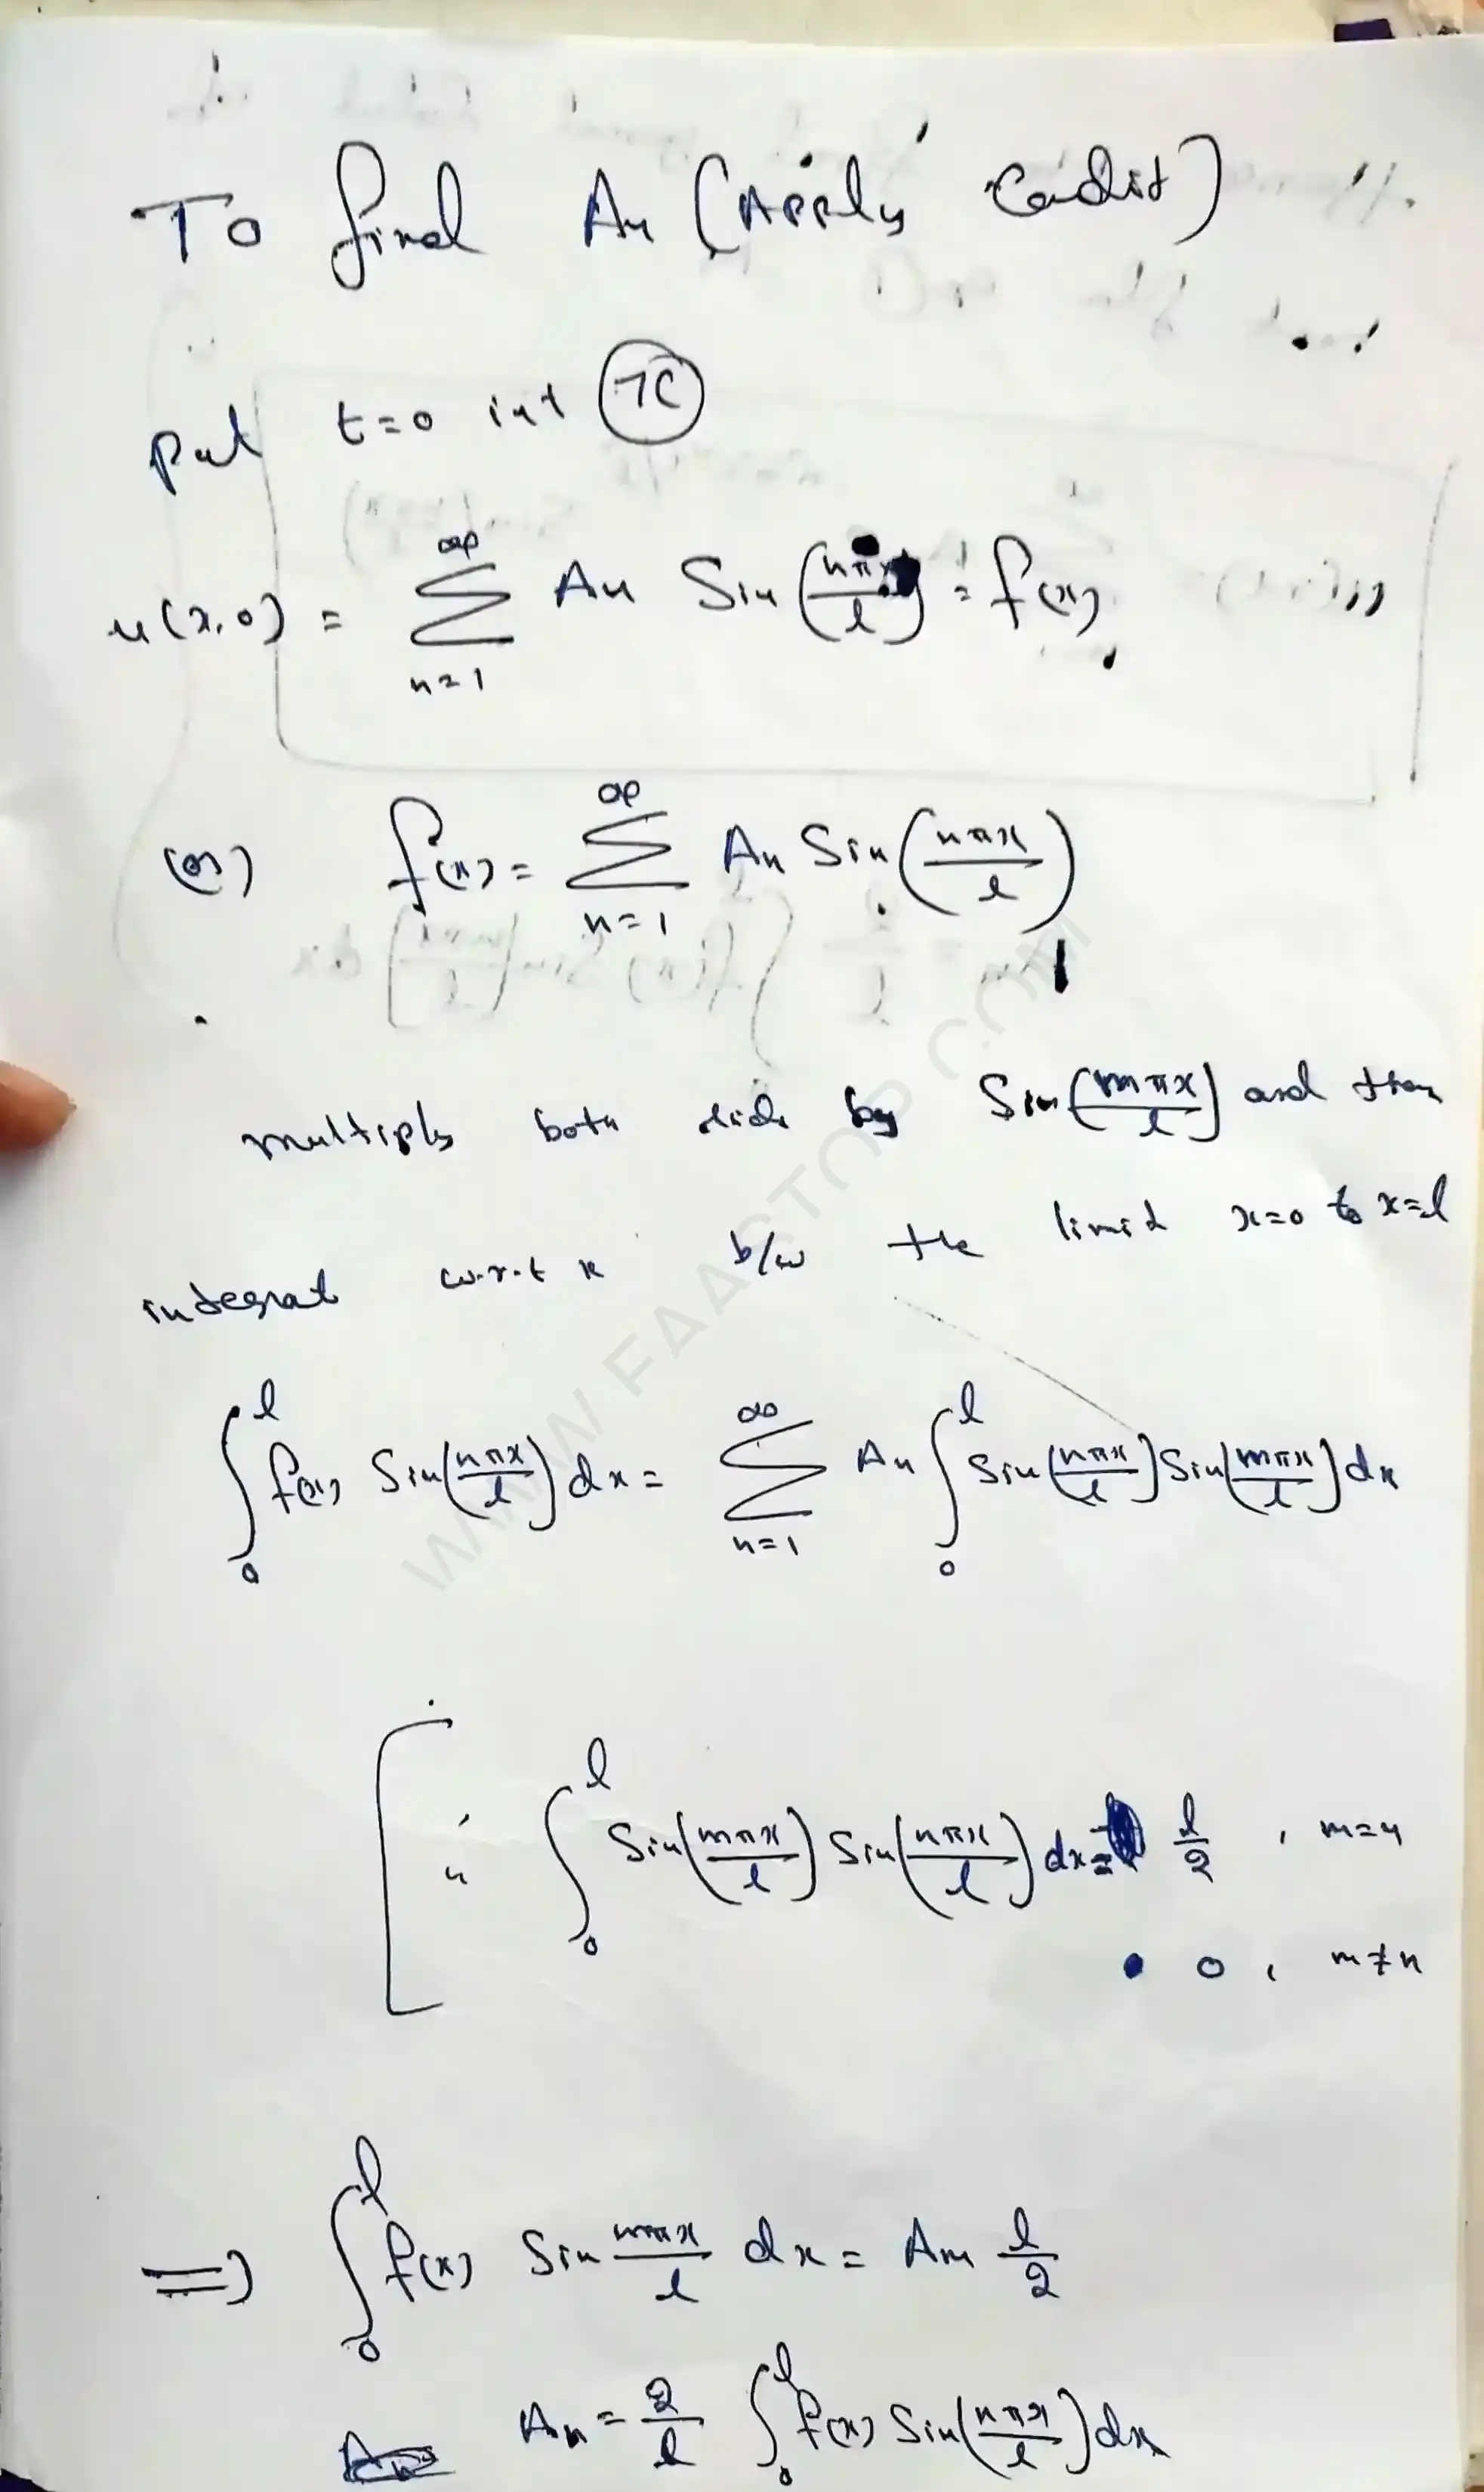 To find An (Apply Condit)
Put t=0 int 7C
u(x,0) = ∞ Σ n=1 An Sin(nπx/l) = f(x)
(or) f(x) = ∞ Σ n=1 An Sin(nπx/l)
multiply both side by Sin(mπx/l) and then
integrat w.r.t x b/w the limit x=0 to x=l
∫₀ˡ f(x) Sin(nπx/l) dx = ∞ Σ n=1 An ∫₀ˡ Sin(nπx/l) Sin(mπx/l) dx
[ ∵ ∫₀ˡ Sin(mπx/l) Sin(nπx/l) dx = l/2 , m=n
0 , m≠n
⇒ ∫₀ˡ f(x) Sin mπx/l dx = Am l/2
An = 2/l ∫₀ˡ f(x) Sin(nπx/l) dx
WWW.FAASTOP.COM